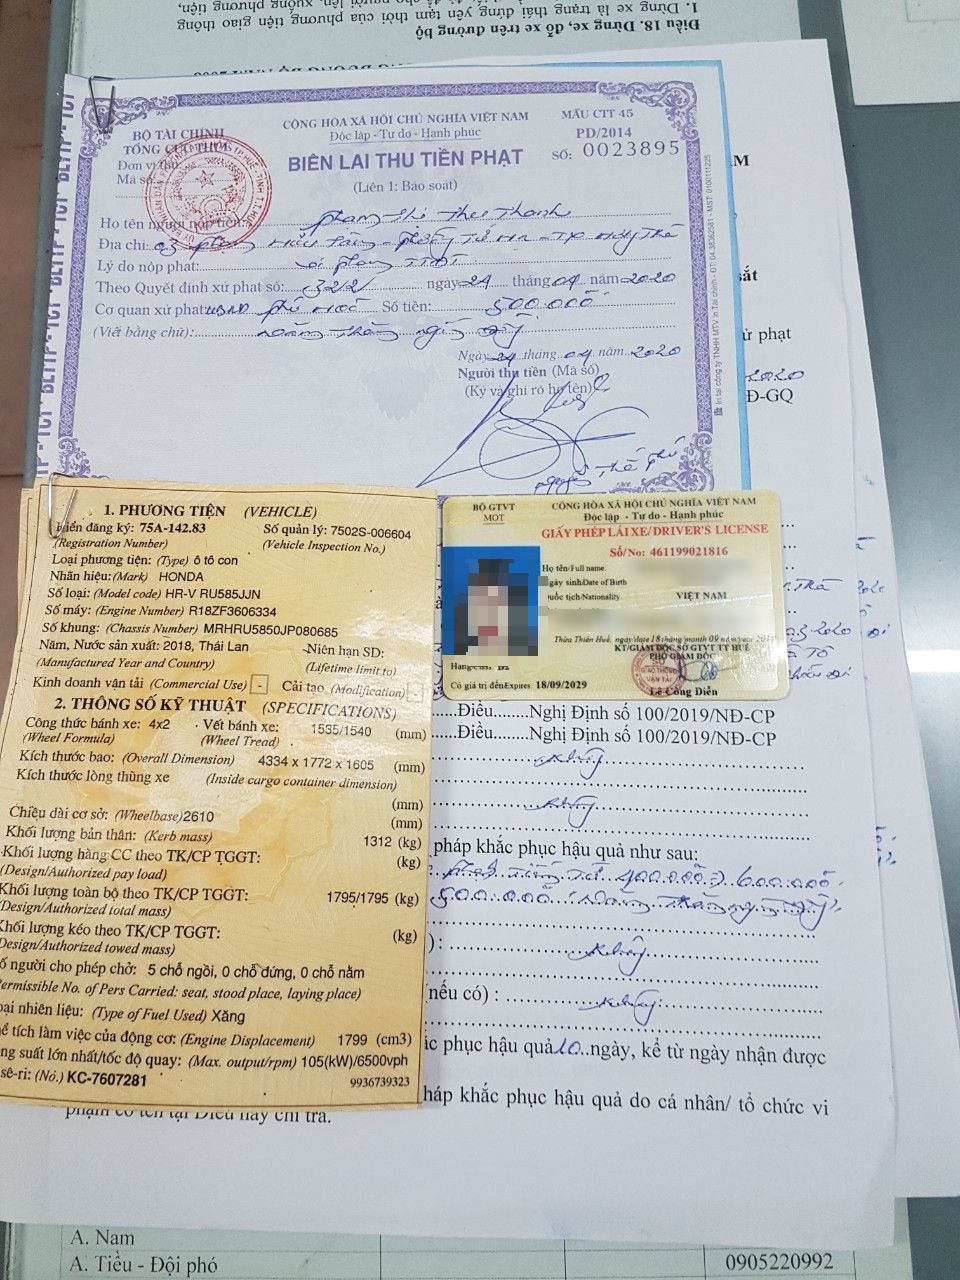 Điều 18. Dừng xe, đỗ xe trên đường bộ
1. Dừng xe là trạng thái đứng yên tạm thời của phương tiện giao thông
BỘ TÀI CHÍNH
TỔNG CỤC THUẾ
Đơn vị thu:
Mã số:
CỘNG HÒA XÃ HỘI CHỦ NGHĨA VIỆT NAM
Độc lập - Tự do - Hạnh phúc
BIÊN LAI THU TIỀN PHẠT
(Liên 1: Báo soát)
MẪU CTT 45
PD/2014
SỐ: 0023895
Họ tên người nộp tiền: Phạm Thị Thu Thanh
Địa chỉ:
Lý do nộp phạt: vi phạm TTĐT
Theo Quyết định xử phạt số: 322 ngày 24 tháng 04 năm 2020
Cơ quan xử phạt: UBND Phú Hoà Số tiền: 500.000đ
(Viết bằng chữ):
Ngày 24 tháng 04 năm 2020
Người thu tiền (Mã số)
(Ký và ghi rõ họ tên)
Nguyễn Thế Phú
1. PHƯƠNG TIỆN (VEHICLE)
Biển đăng ký: 75A-142.83 Số quản lý: 7502S-006604
(Registration Number) (Vehicle Inspection No.)
Loại phương tiện: (Type) ô tô con
Nhãn hiệu: (Mark) HONDA
Số loại: (Model code) HR-V RU585JJN
Số máy: (Engine Number) R18ZF3606334
Số khung: (Chassis Number) MRHRU5850JP080685
Năm, Nước sản xuất: 2018, Thái Lan Niên hạn SD:
(Manufactured Year and Country) (Lifetime limit to)
Kinh doanh vận tải (Commercial Use) - Cải tạo (Modification) -
2. THÔNG SỐ KỸ THUẬT (SPECIFICATIONS)
Công thức bánh xe: 4x2 Vết bánh xe: 1535/1540 (mm)
(Wheel Formula) (Wheel Tread)
Kích thước bao: (Overall Dimension) 4334 x 1772 x 1605 (mm)
Kích thước lòng thùng xe (Inside cargo container dimension)
(mm)
Chiều dài cơ sở: (Wheelbase) 2610 (mm)
Khối lượng bản thân: (Kerb mass) 1312 (kg)
Khối lượng hàng CC theo TK/CP TGGT: (kg)
(Design/Authorized pay load)
Khối lượng toàn bộ theo TK/CP TGGT: 1795/1795 (kg)
(Design/Authorized total mass)
Khối lượng kéo theo TK/CP TGGT: (kg)
(Design/Authorized towed mass)
Số người cho phép chở: 5 chỗ ngồi, 0 chỗ đứng, 0 chỗ nằm
(Permissible No. of Pers Carried: seat, stood place, laying place)
Loại nhiên liệu: (Type of Fuel Used) Xăng
Thể tích làm việc của động cơ: (Engine Displacement) 1799 (cm3)
Công suất lớn nhất/tốc độ quay: (Max. output/rpm) 105(kW)/6500vph
sê-ri: (No.) KC-7607281 9936739323
BỘ GTVT
MOT
CỘNG HÒA XÃ HỘI CHỦ NGHĨA VIỆT NAM
Độc lập - Tự do - Hạnh phúc
GIẤY PHÉP LÁI XE/DRIVER'S LICENSE
Số/No: 461199021816
Họ tên/Full name:
Ngày sinh/Date of Birth
Quốc tịch/Nationality VIỆT NAM
Thừa Thiên Huế, ngày/date 18 tháng/month 09 năm/year
KT/GIÁM ĐỐC SỞ GTVT TT HUẾ
PHÓ GIÁM ĐỐC
Hạng/Class: B2
Có giá trị đến/Expires: 18/09/2029
Lê Công Diễn
xử phạt
2020
Đ-GQ
Điều........Nghị Định số 100/2019/NĐ-CP
Điều........Nghị Định số 100/2019/NĐ-CP
không
không
pháp khắc phục hậu quả như sau:
400.000đ 600.000đ
500.000đ
): không
(nếu có) : không
ắc phục hậu quả 10 ngày, kể từ ngày nhận được
háp khắc phục hậu quả do cá nhân/ tổ chức vi
phạm có tên tại Điều này chi trả.
A. Nam
A. Tiều - Đội phó 0905220992